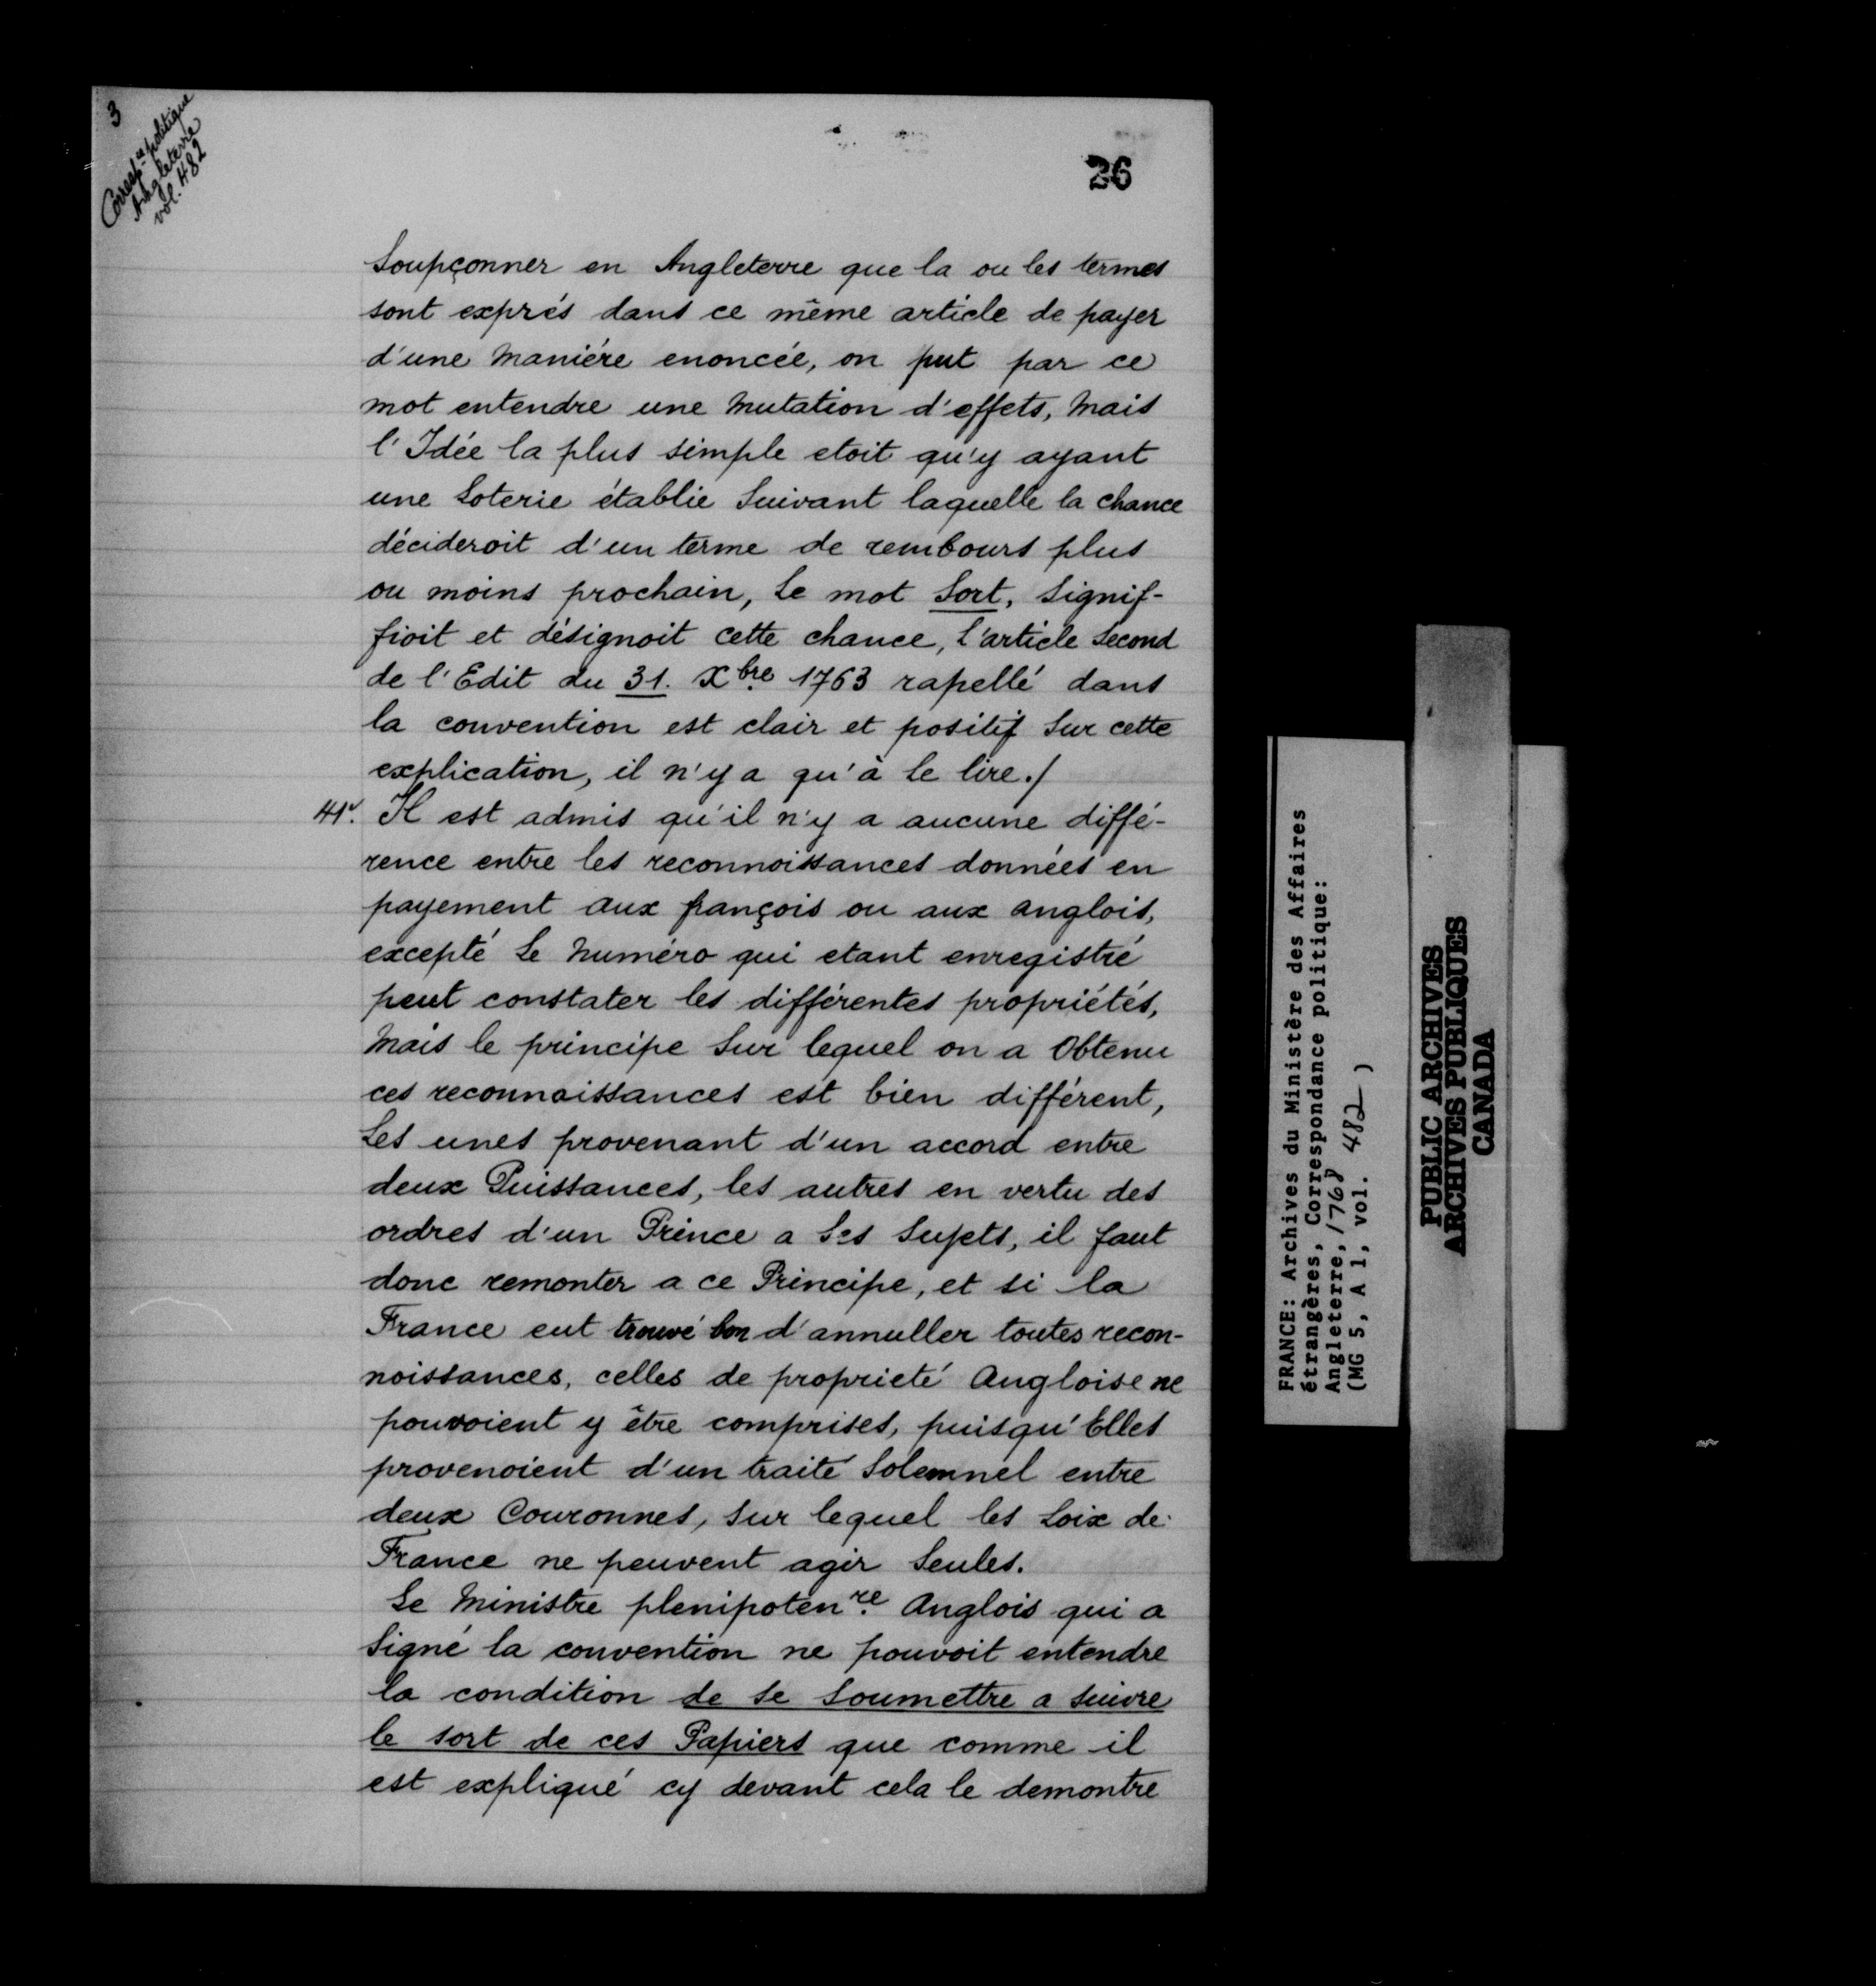 3
Corresp.ce politique
Angleterre
vol. 482
26
Soupçonner en Angleterre que la ou les termes
sont exprés dans ce même article de payer
d'une Maniére enoncée, on put par ce
mot entendre une Mutation d'effets, Mais
l'Idée la plus simple etoit qu'y ayant
une Loterie établie Suivant laquelle la chance
décideroit d'un terme de rembours plus
ou moins prochain, Le mot Sort, Signif-
fioit et désignoit cette chance, L'article Second
de l'Edit du 31. Xbre 1763 rapellé dans
la convention est clair et positif Sur cette
explication, il n'y a qu'à Le lire./
41v. Il est admis qu'il n'y a aucune diffé-
rence entre les reconnoissances données en
payement aux françois ou aux anglois,
excepté Le Numéro qui etant enregistré
peut constater les différentes propriétés,
Mais le principe Sur lequel on a Obtenu
ces reconnaissances est bien différent,
Les unes provenant d'un accord entre
deux Puissances, les autres en vertu des
ordres d'un Prince a Ses Sujets, il faut
donc remonter a ce Principe, et si la
France eut trouvé bon d'annuller toutes recon-
noissances, celles de proprieté Angloise ne
pouvoient y être comprises, puisqu'Elles
provenoient d'un traité Solemnel entre
deux Couronnes, Sur lequel les Loix de
France ne peuvent agir Seules.
Le Ministre plenipoten.re Anglois qui a
Signé la convention ne pouvoit entendre
la condition de Se Soumettre a Suivre
le sort de ces Papiers que comme il
est expliqué cy devant cela le demontre
FRANCE: Archives du Ministère des Affaires
étrangères, Correspondance politique:
Angleterre, 1768
(MG 5, A 1, vol. 482)
PUBLIC ARCHIVES
ARCHIVES PUBLIQUES
CANADA